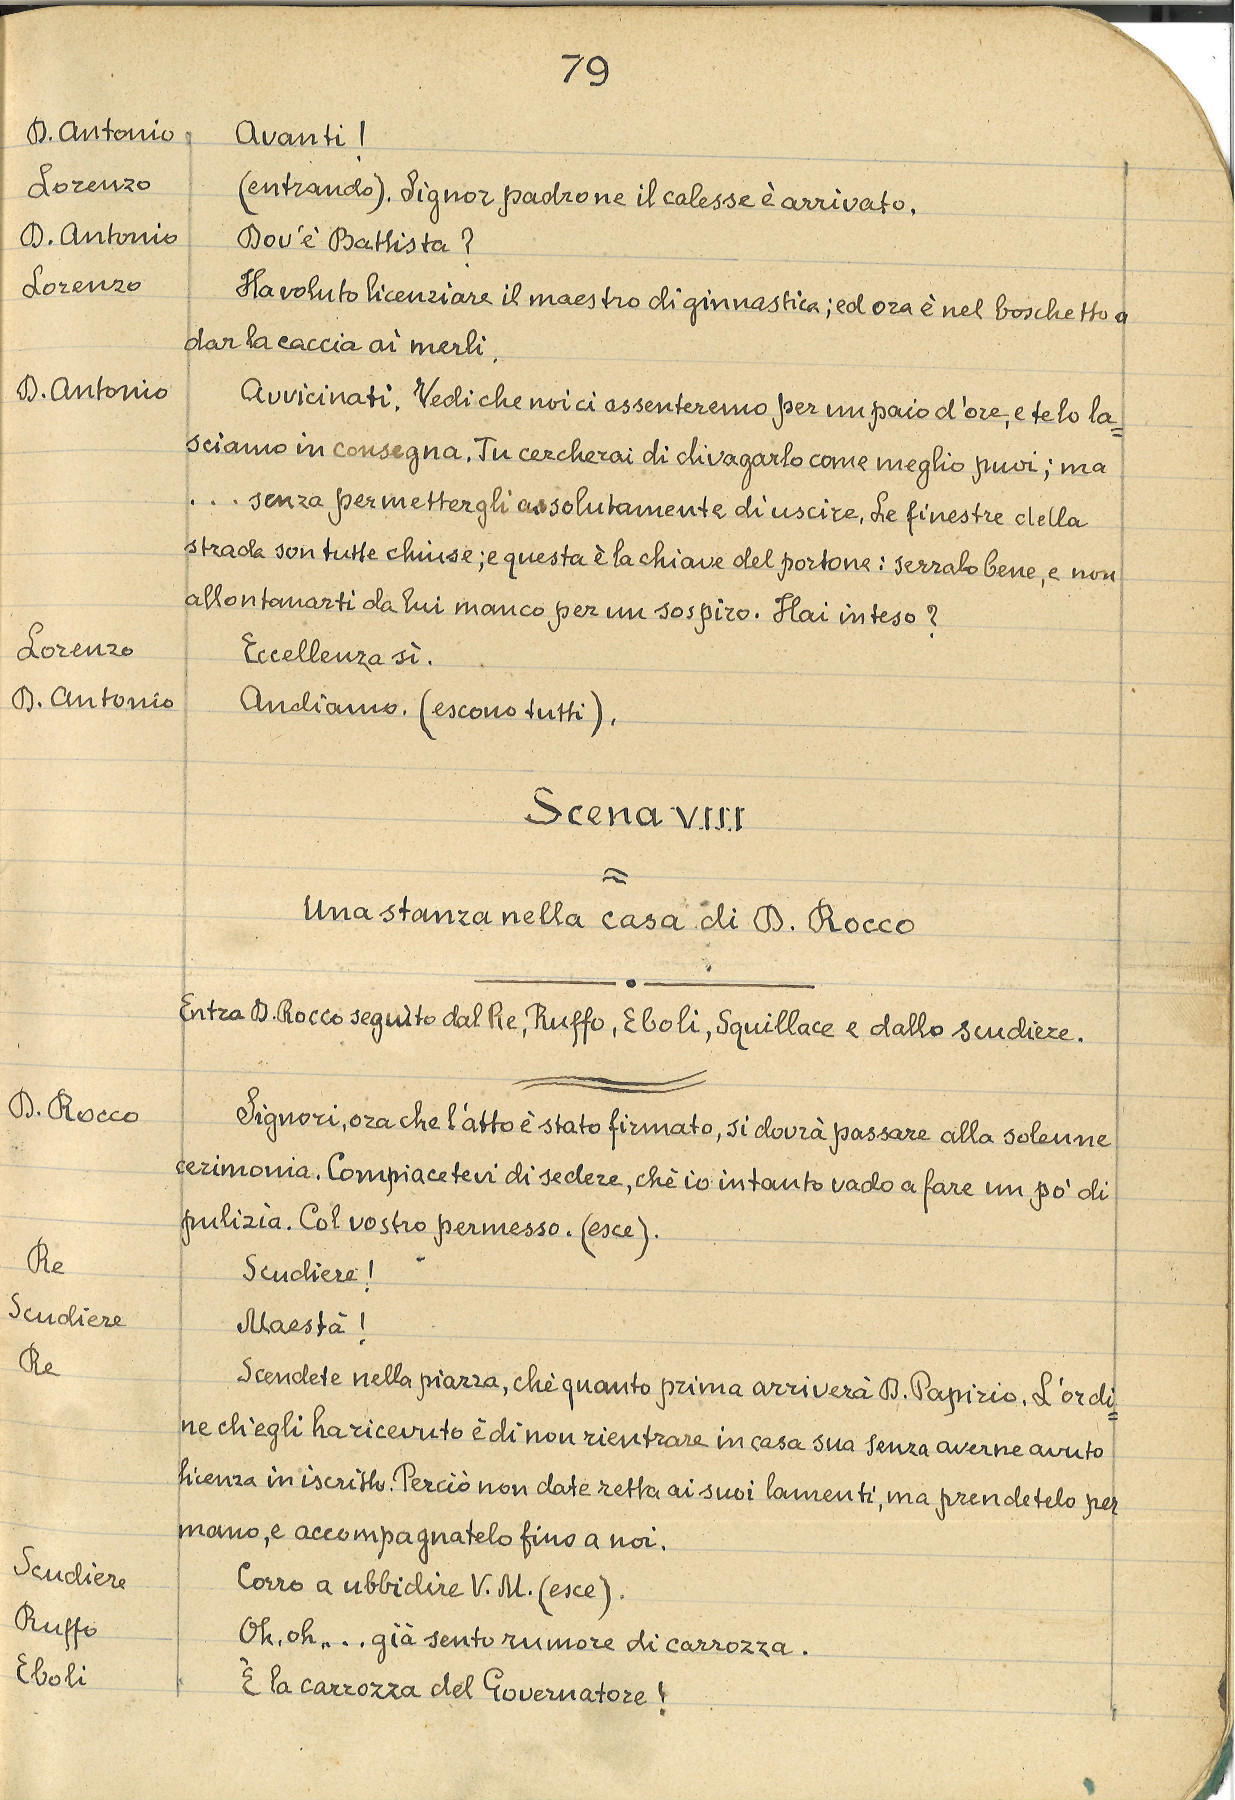 79
D. Antonio Avanti!
Lorenzo (entrando). Signor padrone il calesse è arrivato.
D. Antonio Dov'è Battista?
Lorenzo Ha voluto licenziare il maestro di ginnastica; ed ora è nel boschetto a
dar la caccia ai merli.
D. Antonio Avvicinati. Vedi che noi ci assenteremo per un paio d'ore, e te lo la=
sciamo in consegna. Tu cercherai di divagarlo come meglio puoi; ma
... senza permettergli assolutamente di uscire. Le finestre della
strada son tutte chiuse; e questa è la chiave del portone: serralo bene, e non
allontanarti da lui manco per un sospiro. Hai inteso?
Lorenzo Eccellenza sì.
D. Antonio Andiamo. (escono tutti).
Scena VIII
Una stanza nella casa di D. Rocco
Entra D. Rocco seguito dal Re, Ruffo, Eboli, Squillace e dallo scudiere.
D. Rocco Signori, ora che l'atto è stato firmato, si dovrà passare alla solenne
cerimonia. Compiacetevi di sedere, chè io intanto vado a fare un pò di
pulizia. Col vostro permesso. (esce).
Re Scudiere!
Scudiere Maestà!
Re Scendete nella piazza, chè quanto prima arriverà D. Papirio. L'ordi=
ne ch'egli ha ricevuto è di non rientrare in casa sua senza averne avuto
licenza in iscritto. Perciò non date retta ai suoi lamenti, ma prendetelo per
mano, e accompagnatelo fino a noi.
Scudiere Corro a ubbidire V. M. (esce).
Ruffo Oh, oh,... già sento rumore di carrozza.
Eboli È la carrozza del Governatore!